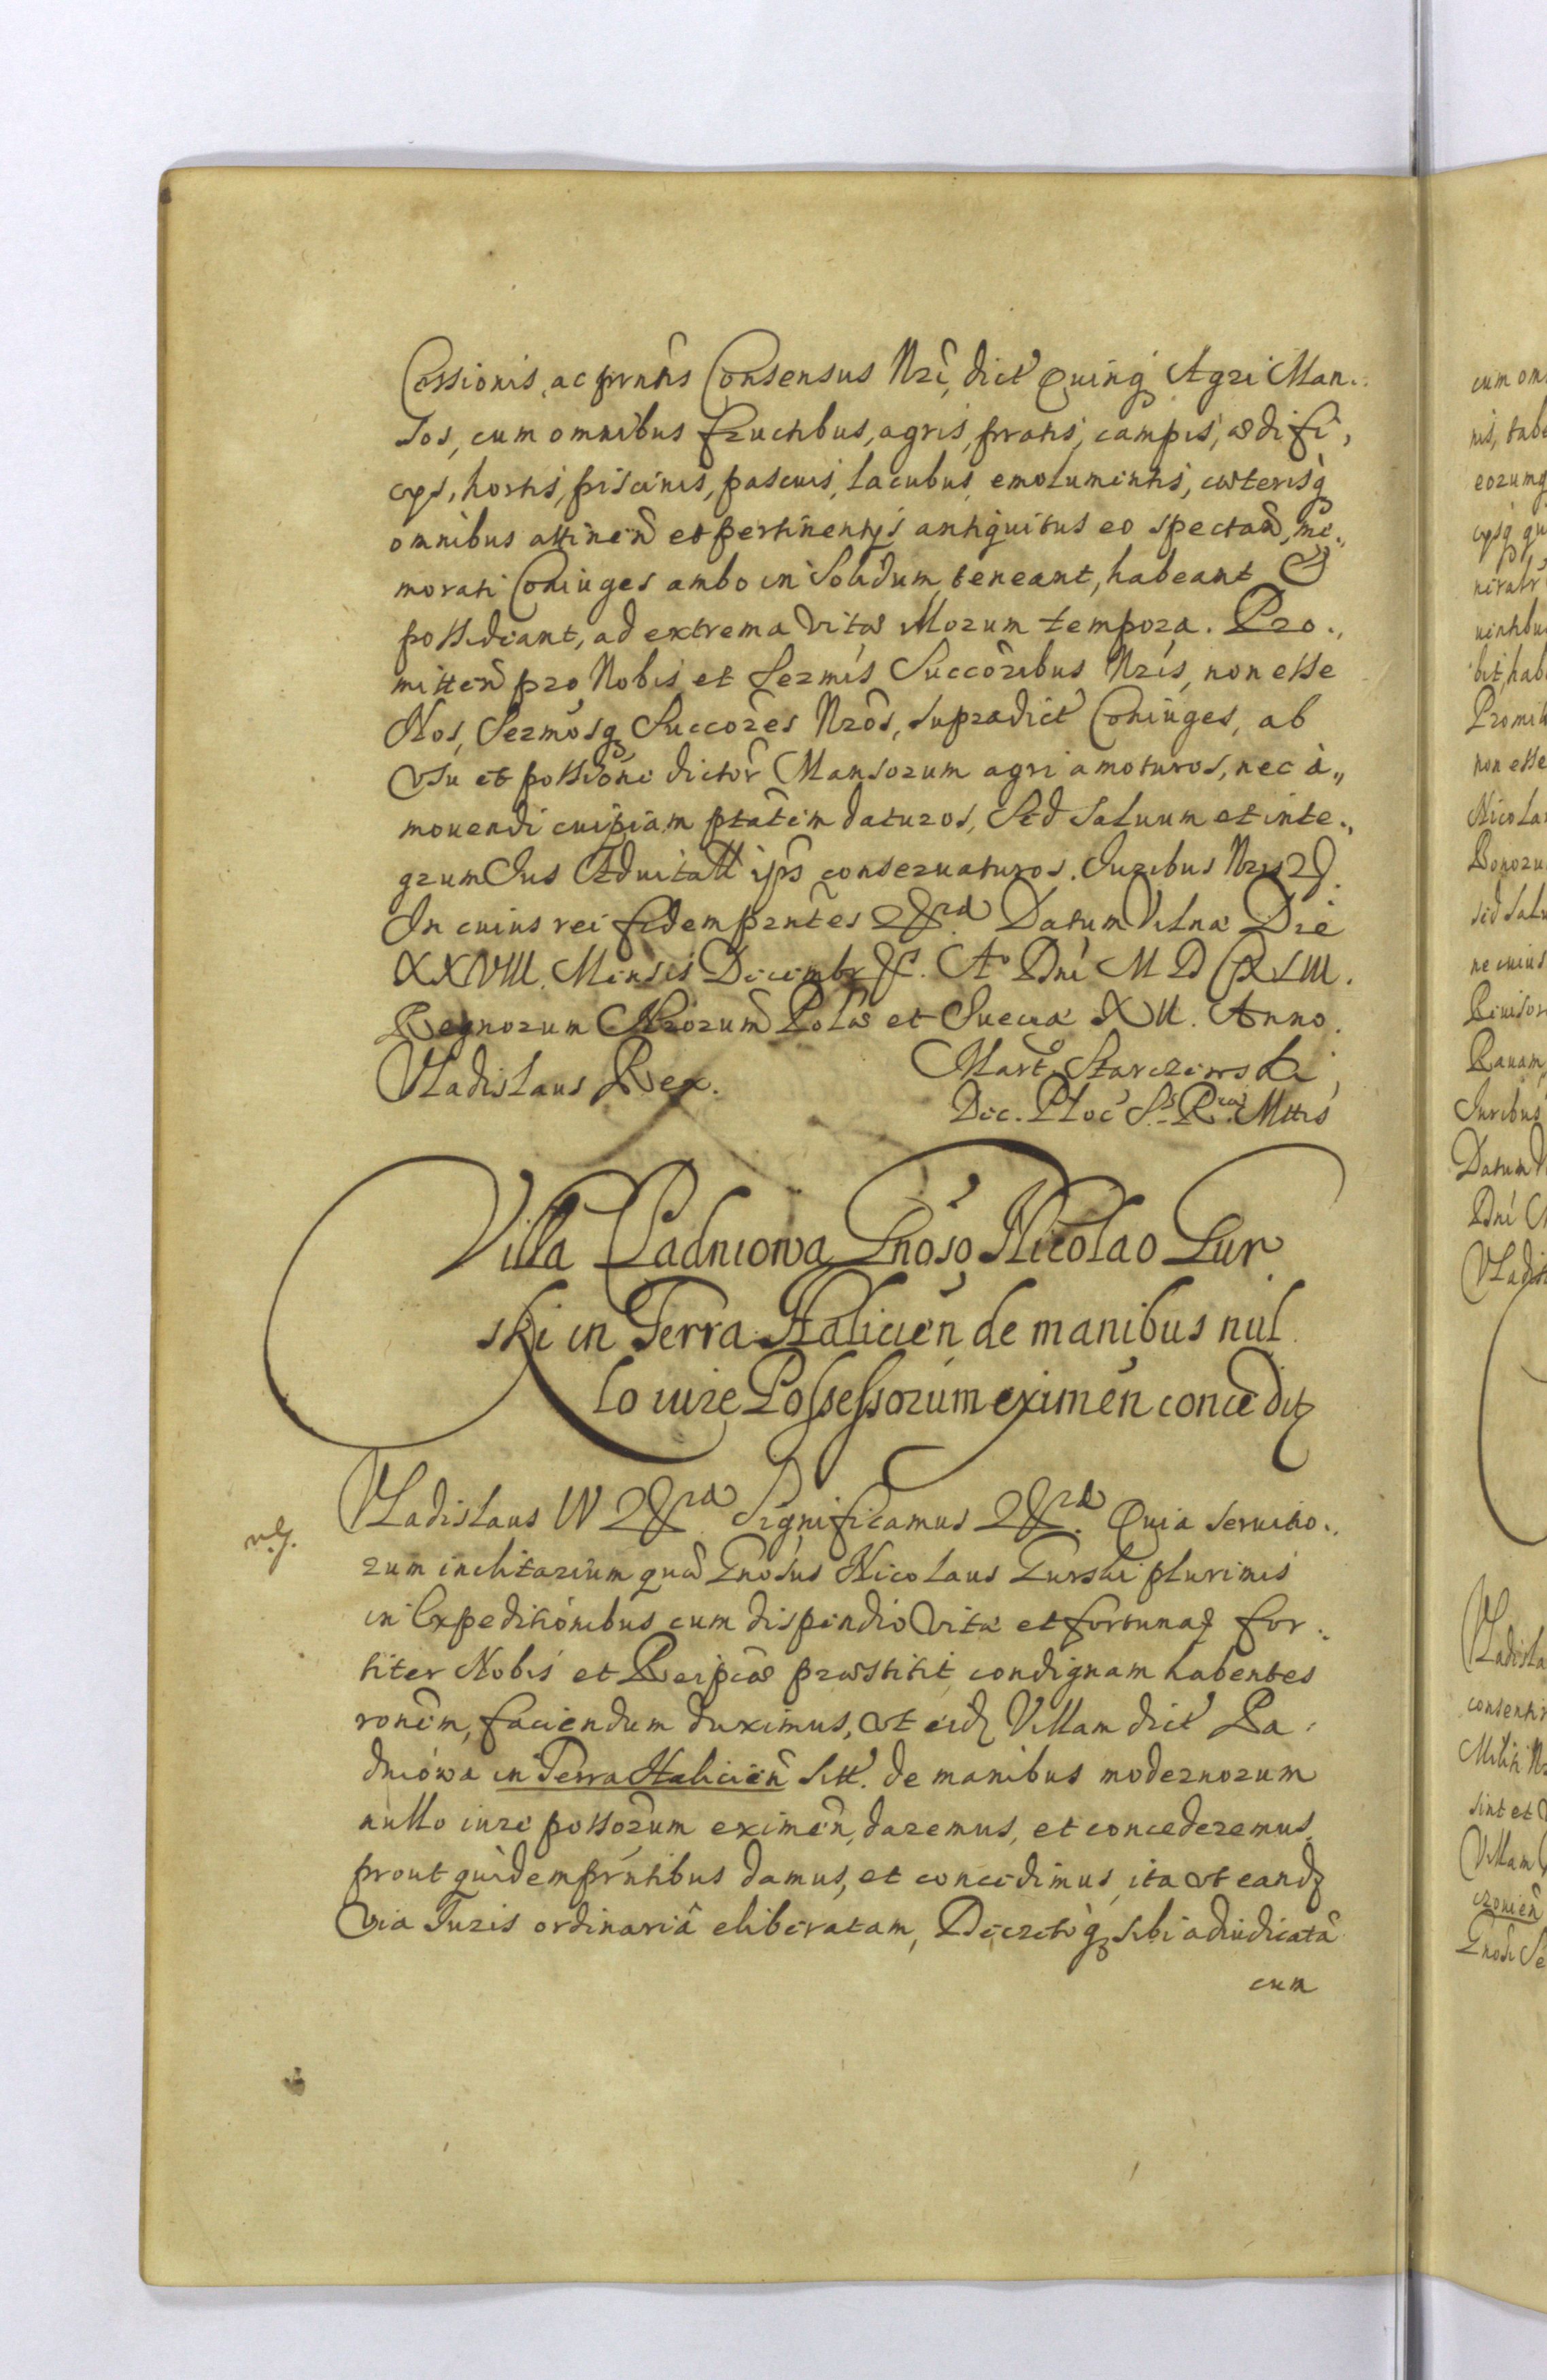 Cessionis, ac prntis Consensus Nri, dict Quinq Agri Man
sos, cum omnibus fructibus, agris, pratis, campis, ædifi
cijs, hortis, piscinis, pascuis, lacubus, emolumentis, cæterisq
omnibus attinen et pertinentijs antiquitus eo spectan, me
morati Coniuges ambo in solidum teneant, habeant et
possideant, ad extrema vitæ illorum tempora. Pro
mitten pro Nobis et Sermis Succoribus Nris, non esse
Nos, Sermosq Succores Nros, supradict Coniuges, ab
vsu et possione dictor Mansorum agri amoturos, nec a
mouendi cuipiam ptatem daturos, sed saluum et inte
grum Ius Aduitali ips conseruaturos. Iuribus Nris &
In cuius rei fidem prntes &ra Datum Vilnæ Die
XXVIII. Mensis Decembr Ao Dni M D C XLIII.
Regnorum Nrorum Polæ et Sueciæ XII. Anno.
Vladislaus Rex.
Mart Starczewski,
Dec. Ploc S. Ræ Mttis
Villa Ladniowa Gnoso Nicolao Gur
ski in Terra Halicien de manibus nul
lo iure Possessorum eximen conceditz
Vladislaus IV &ra Significamus &ra. Quia seruitio
rum inclitarium quæ Gnosus Nicolaus Gurski plurimis
in Expeditionibus cum dispendio vitæ et fortunaq for
titer Nobis et Reipcæ præstitit condignam habentes
ronem, faciendum duximus, vt eid Villam dict La
dniowa in Terra Halicien sitt. de manibus modernorum
nullo iure possorum eximen, daremus, et concederemus,
prout quidem prntibus damus, et concedimus, ita vt eandz
via Iuris ordinaria eliberatam, Decretoq sibi adiudicata
cum